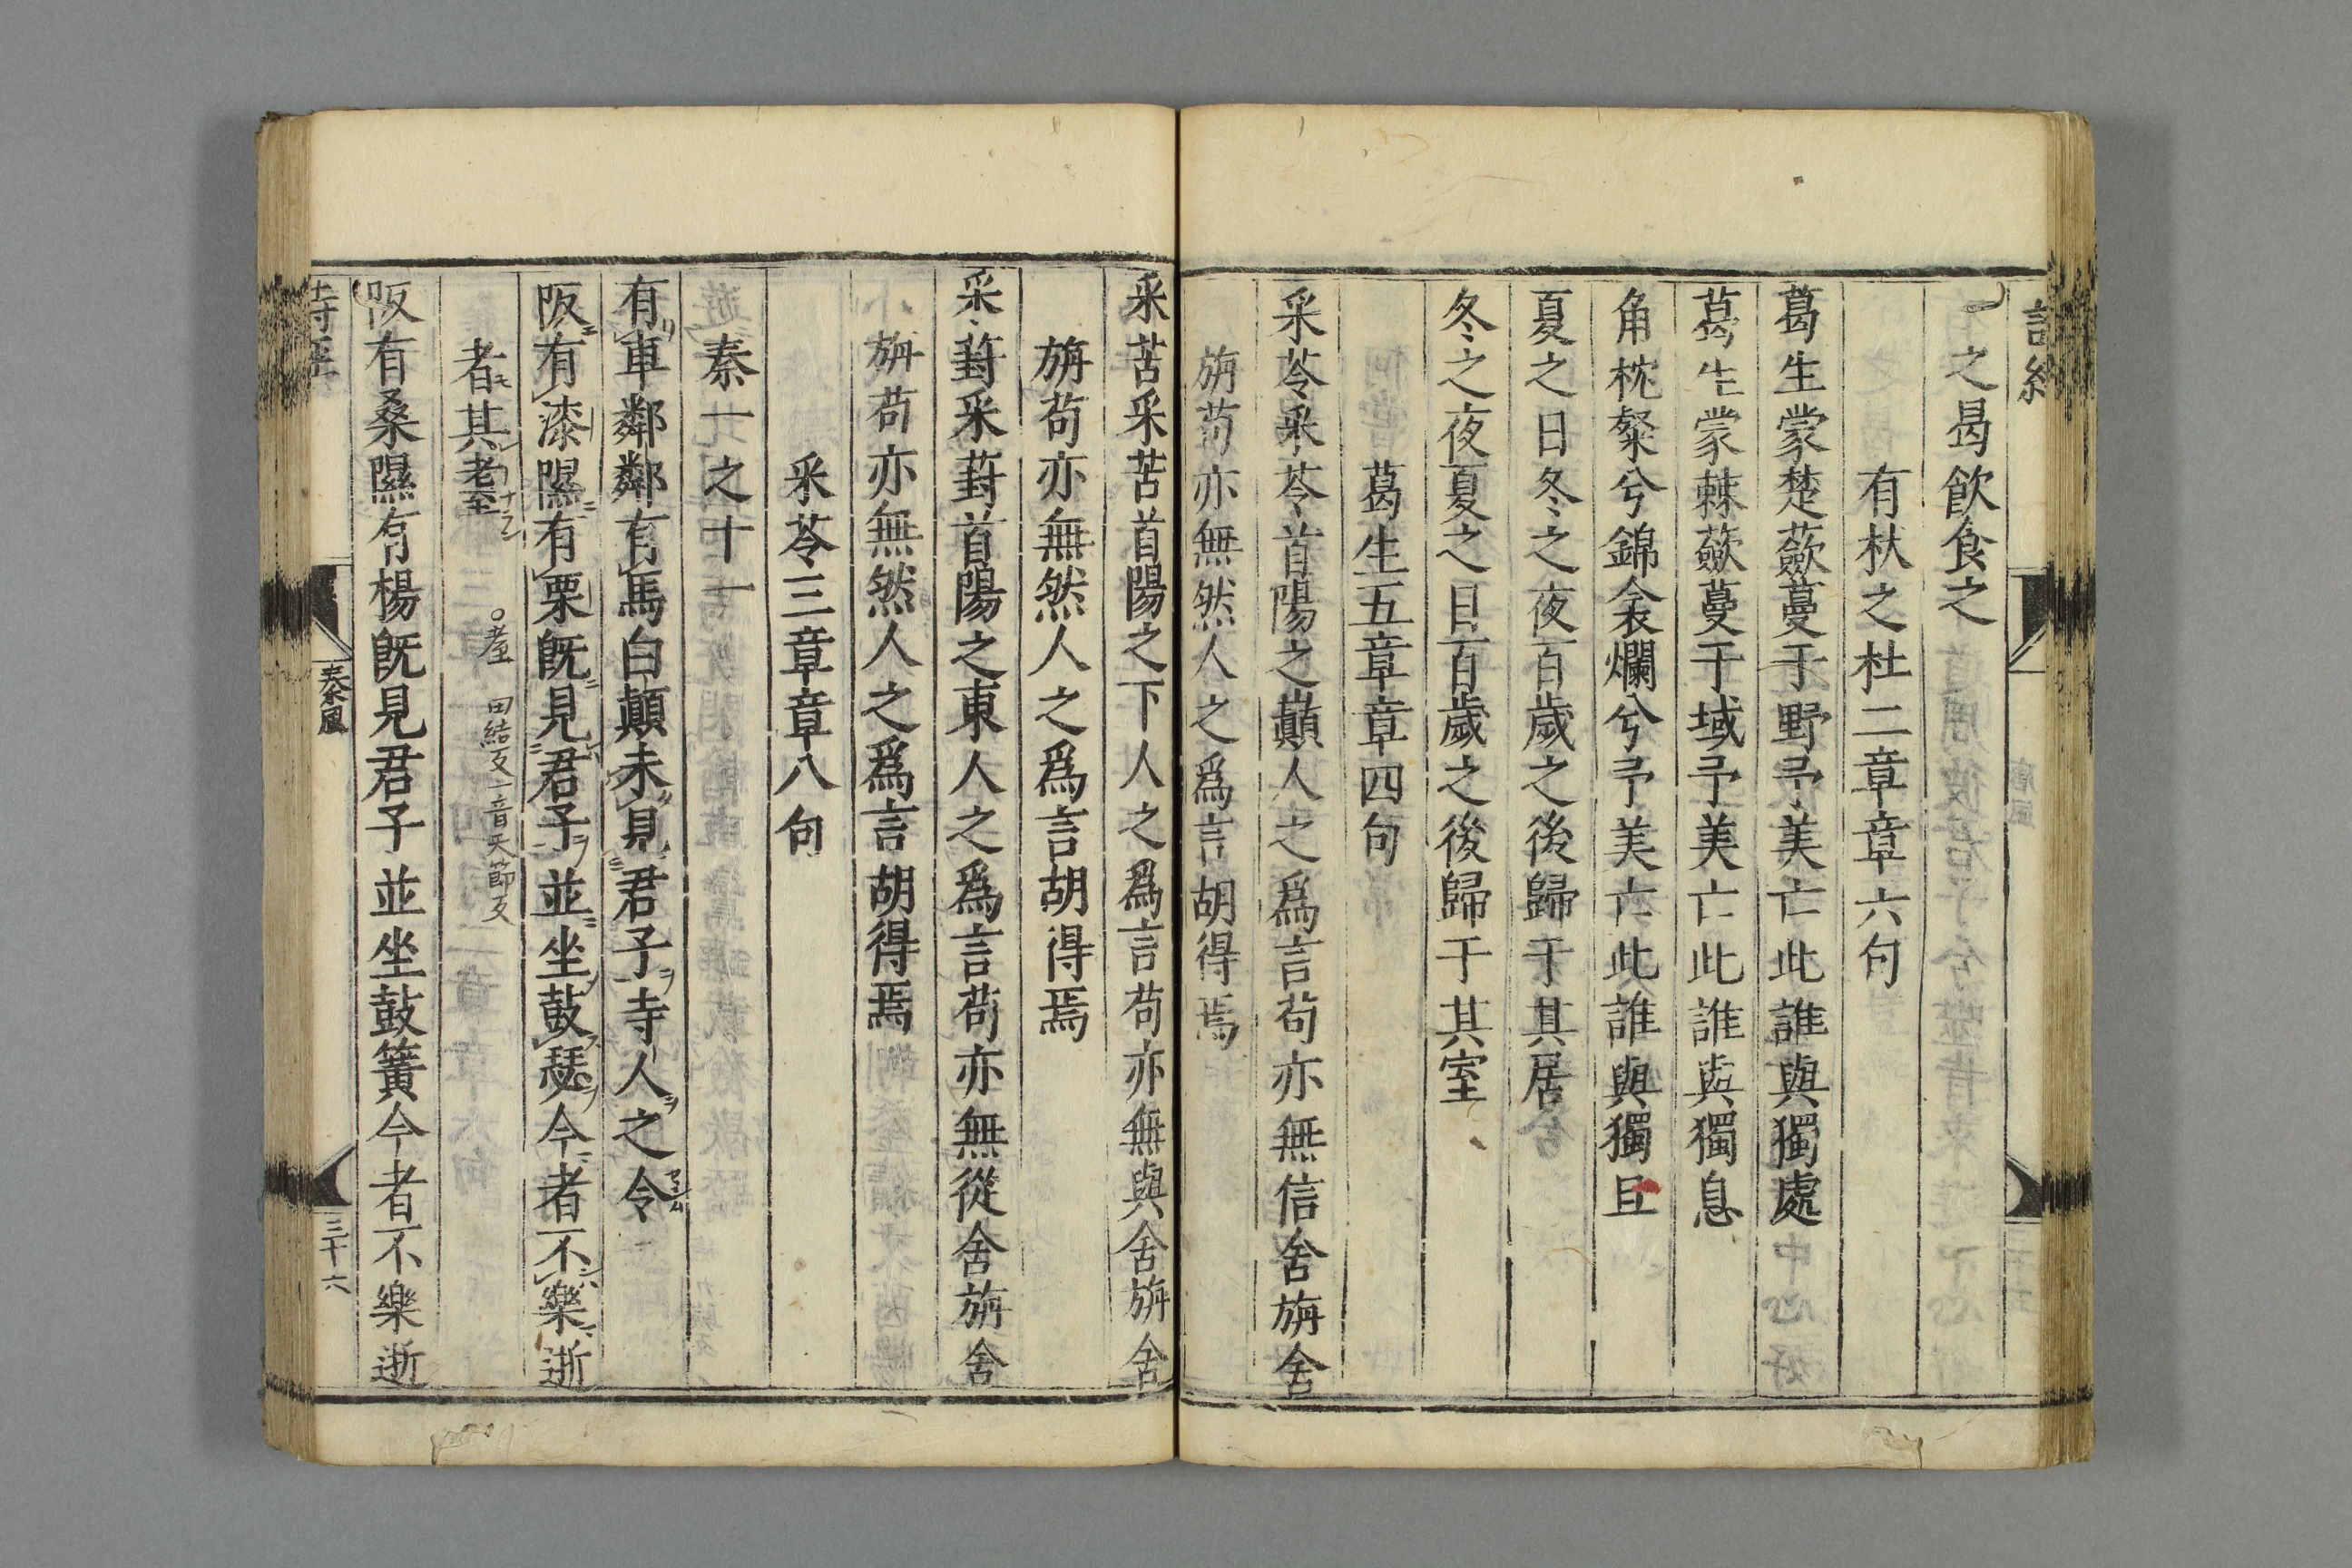 之曷飲食之
有杕之杜二章章六句
葛生蒙楚蘞蔓于野予美亡此誰與獨處
葛生蒙棘蘞蔓于域予美亡此誰與獨息
角枕粲兮錦衾爛兮予美亡此誰與獨旦
夏之日冬之夜百歲之後歸于其居
冬之夜夏之日百歲之後歸于其室
葛生五章章四句
采苓采苓首陽之巔人之爲言苟亦無信舍旃舍
旃苟亦無然人之爲言胡得焉
采苦采苦首陽之下人之爲言苟亦無與舍旃舍
旃苟亦無然人之爲言胡得焉
采葑采葑首陽之東人之爲言苟亦無從舍旃舍
旃苟亦無然人之爲言胡得焉
采苓三章章八句
秦一之十一
有車鄰鄰有馬白顛未見君子寺人之令
阪有漆隰有栗既見君子並坐鼓瑟今者不樂逝
者其耋
○耋 田結反一音天節反
阪有桑隰有楊既見君子並坐鼓簧今者不樂逝
詩經
秦風
三十六